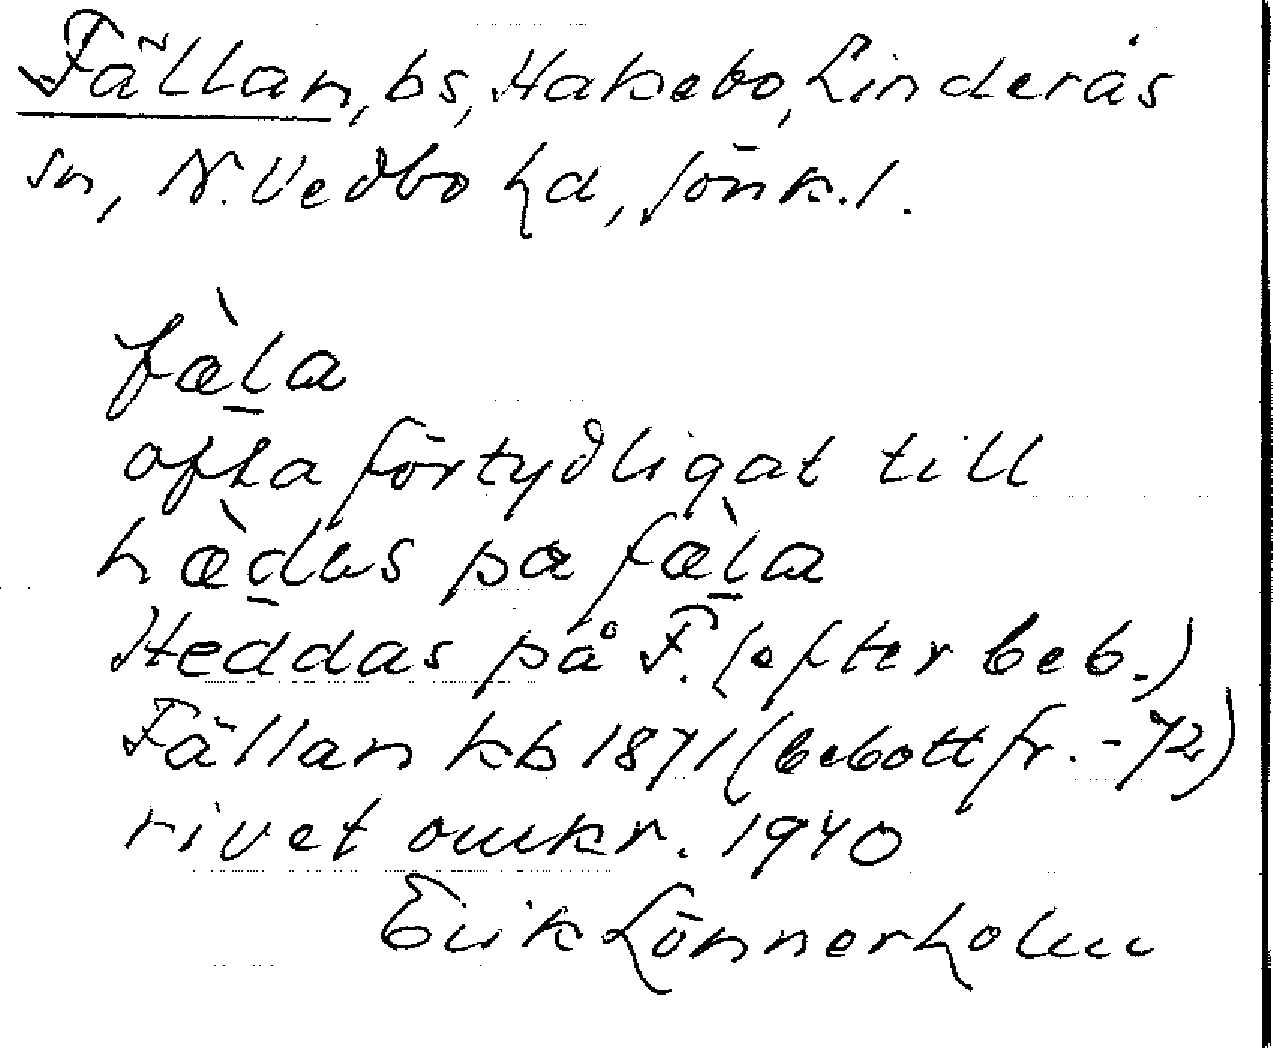 Fällan, bs, Hakebo, Linderås
sn, N. Vedbo hd, Jönk. l.
fæ̀l̲a
ofta förtydligat till
hæ̀d̲as pa fæ̀l̲a
Heddas på F. (efter beb.)
Fällan kb 1871 (bebott fr. -72)
rivet omkr. 1940
Erik Lönnerholm